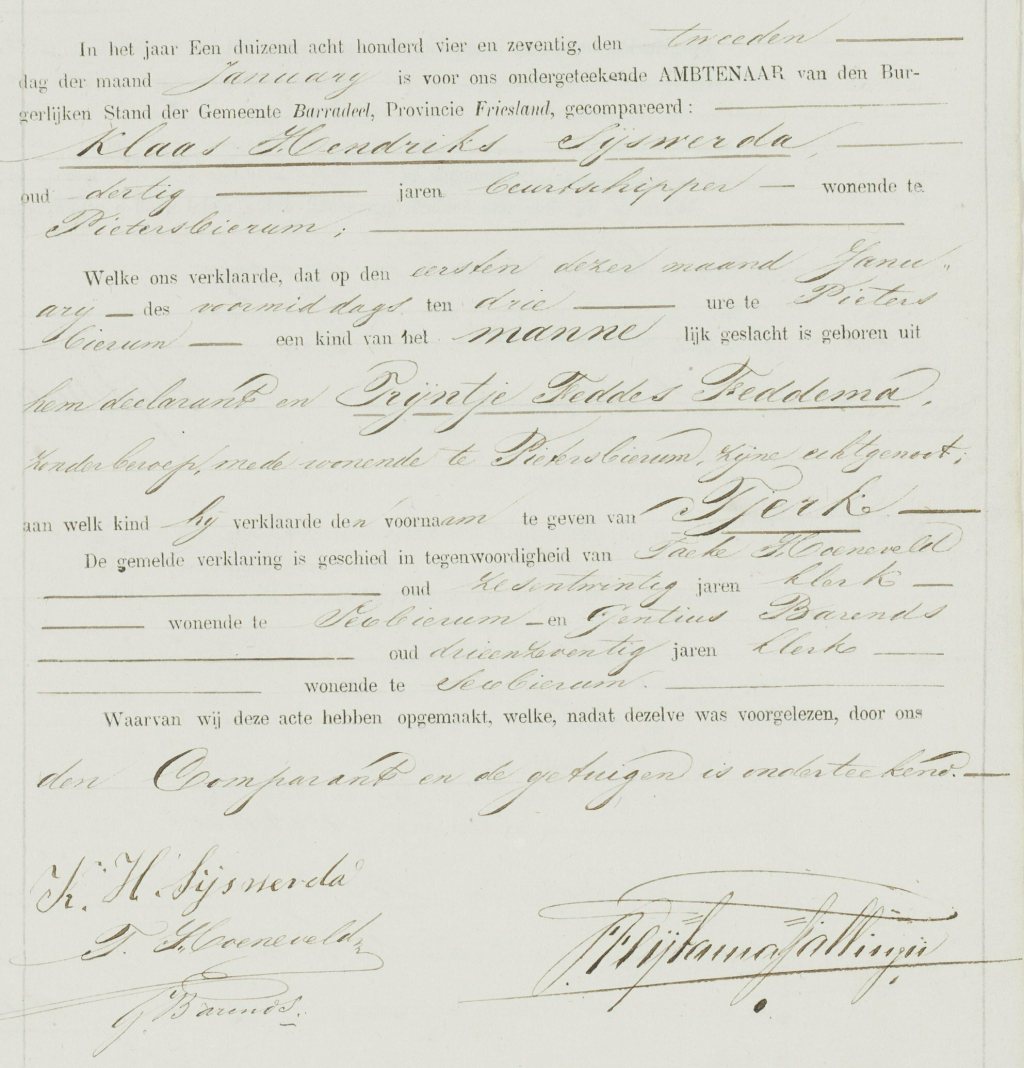 In het jaar Een duizend acht honderd vier en zeventig, den tweeden
dag der maand January is voor ons ondergeteekende AMBTENAAR van den Bur-
gerlijken Stand der Gemeente Barradeel, Provincie Friesland, gecompareerd:
Klaas Hendriks Sijswerda,
oud dertig jaren beurtschipper wonende te
Pietersbierum;
Welke ons verklaarde, dat op den eersten dezer maand Janu„
ary des voormiddags ten drie ure te Pieters
bierum een kind van het manne lijk geslacht is geboren uit
hem declarant en Trijntje Feddes Feddema,
zonder beroep, mede wonende te Pietersbierum, zijne echtgenoot;
aan welk kind hy verklaarde den voornaam te geven van Tjerk
De gemelde verklaring is geschied in tegenwoordigheid van Taeke Hoeneveld
oud zesentwintig jaren klerk
wonende te Sexbierum en Gentius Barends
oud drieentwentig jaren klerk
wonende te Sexbierum.
Waarvan wij deze acte hebben opgemaakt, welke, nadat dezelve was voorgelezen, door ons
den Comparant en de getuigen is onderteekend.
K. H. Sijswerda
T. Hoeneveld
G. Barends.